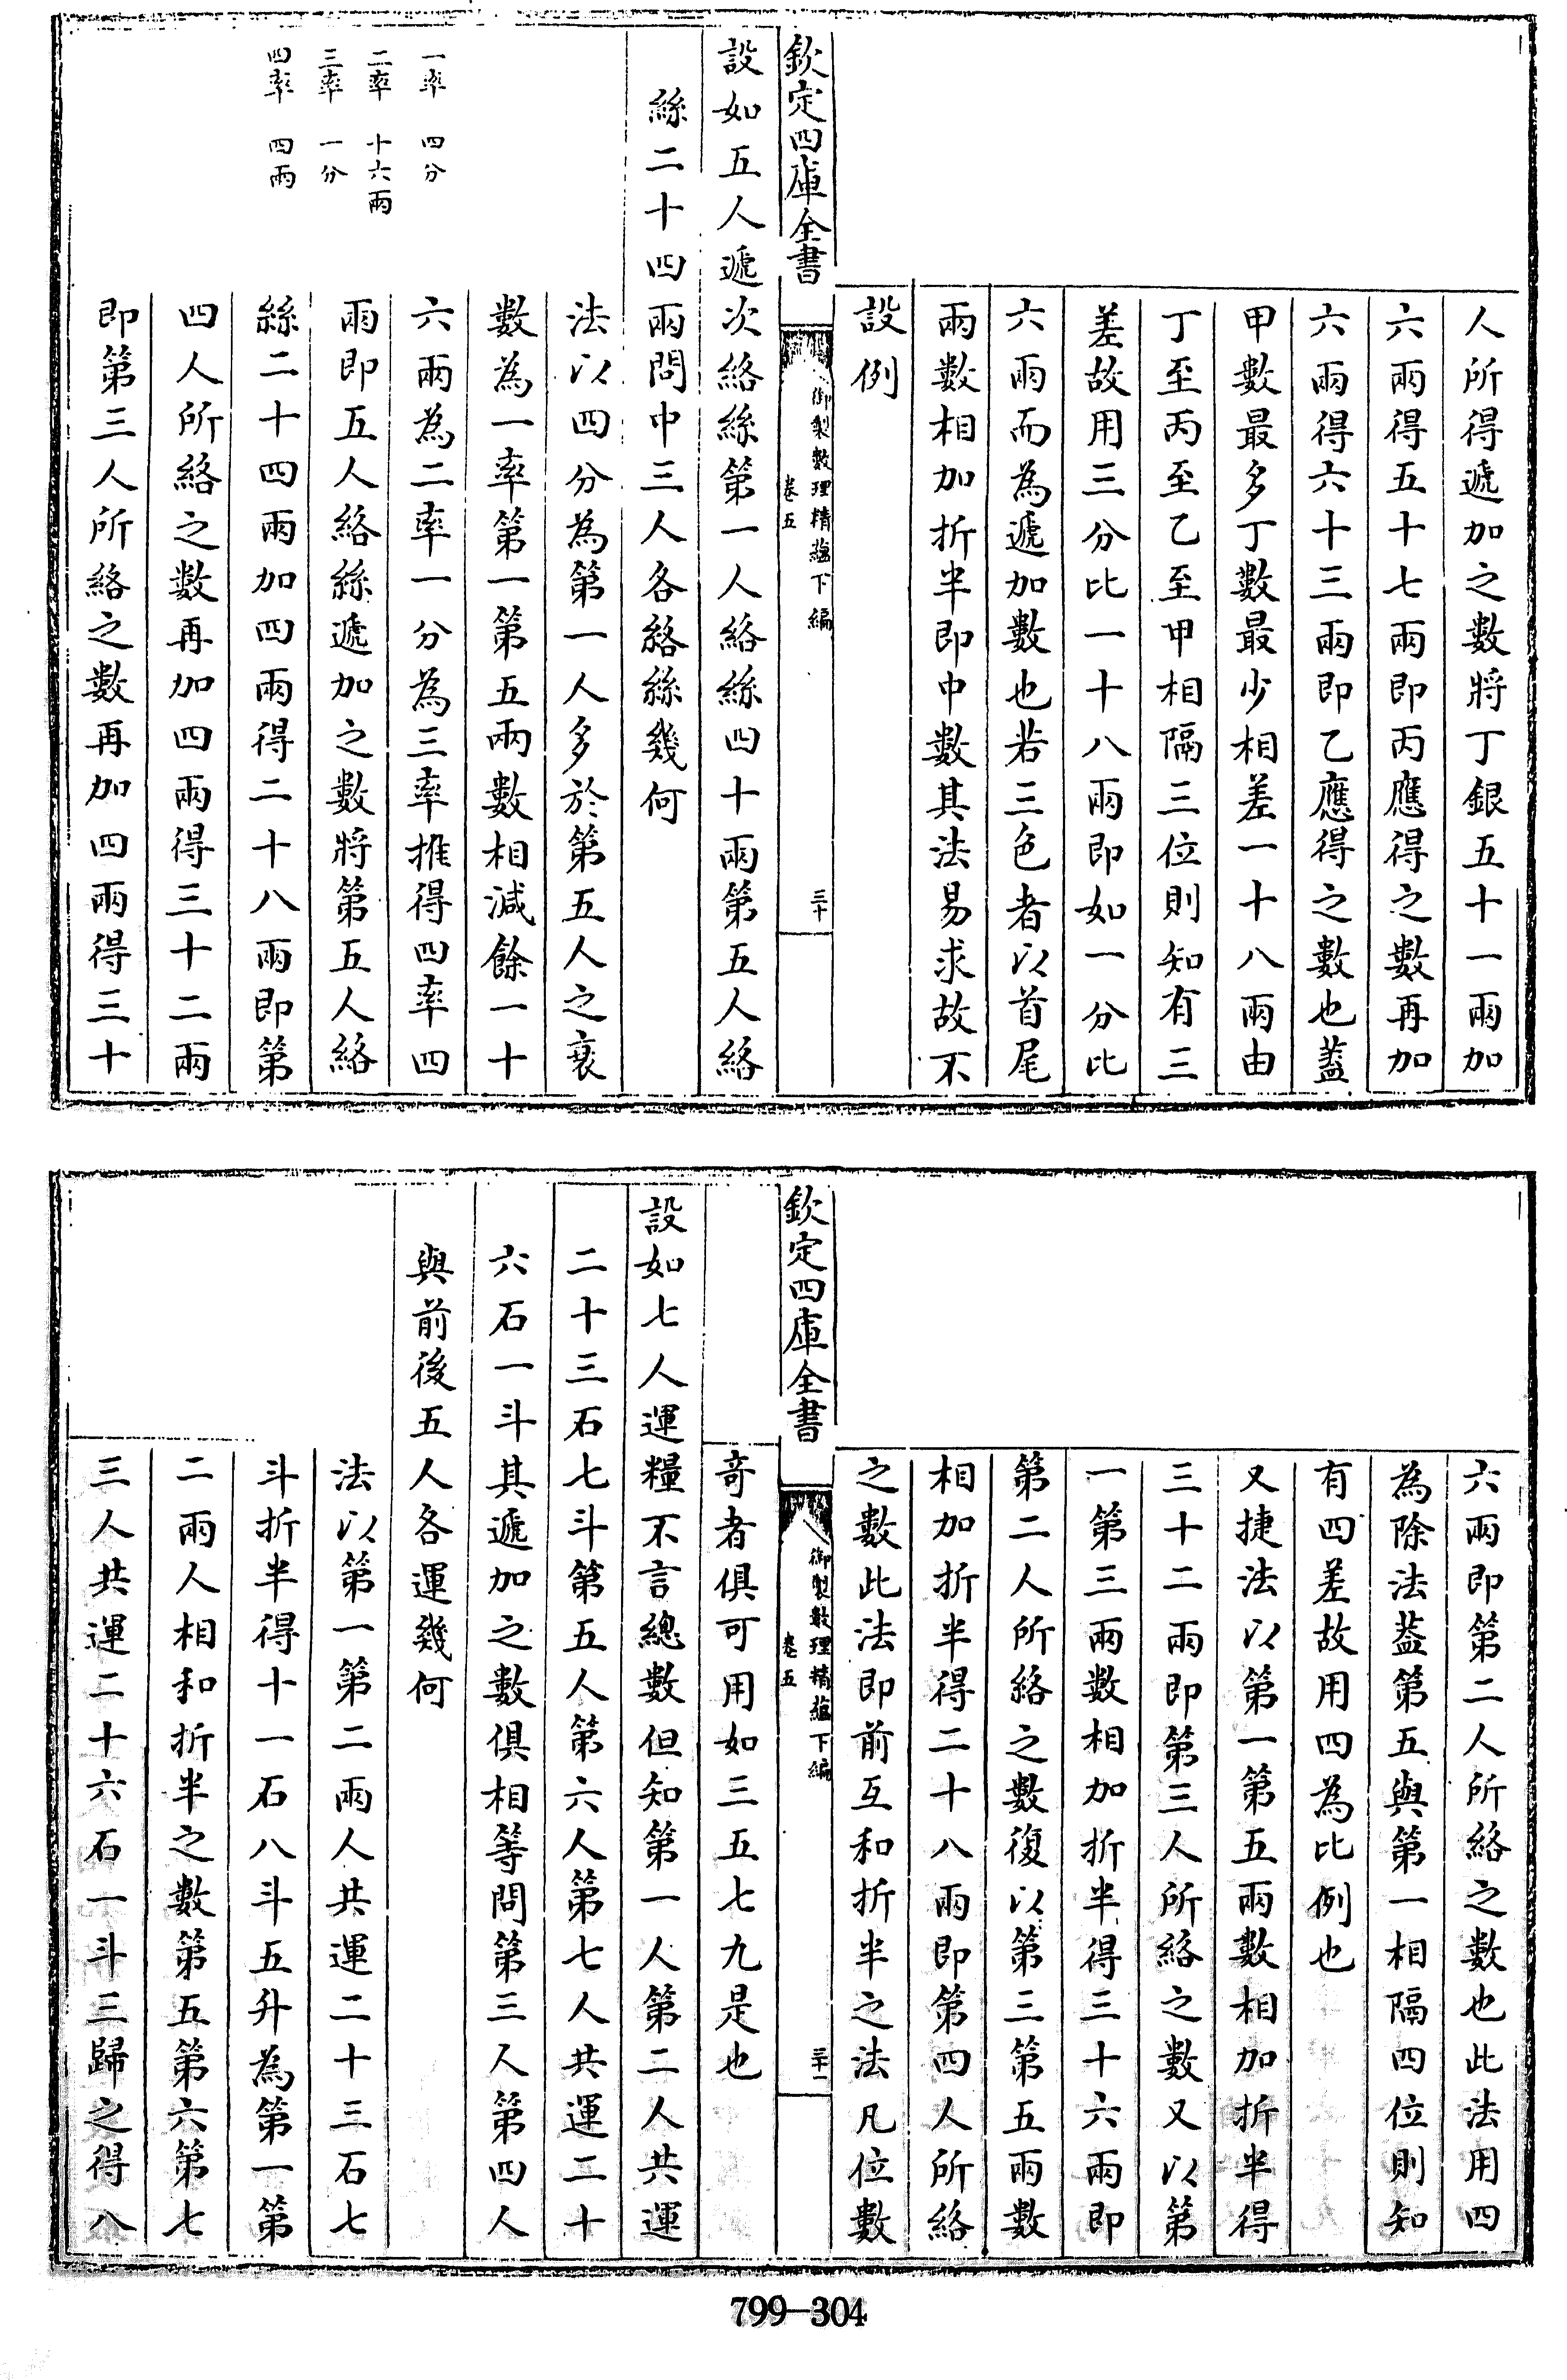 人所得遞加之數將丁銀五十一兩加
六兩得五十七兩即丙應得之數再加
六兩得六十三兩即乙應得之數也蓋
甲數最多丁數最少相差一十八兩由
丁至丙至乙至甲相隔三位則知有三
差故用三分比一十八兩即如一分比
六兩而為遞加數也若三色者以首尾
兩數相加折半即中數其法易求故不
設例
欽定四庫全書
御製數理精蘊下編
卷五
三十
設如五人遞次絡絲第一人絡絲四十兩第五人絡
絲二十四兩問中三人各絡絲幾何
法以四分為第一人多於第五人之衰
數為一率第一第五兩數相減餘一十
六兩為二率一分為三率推得四率四
兩即五人絡絲遞加之數將第五人絡
絲二十四兩加四兩得二十八兩即第
四人所絡之數再加四兩得三十二兩
即第三人所絡之數再加四兩得三十
一率 四分
二率 十六兩
三率 一分
四率 四兩
六兩即第二人所絡之數也此法用四
為除法蓋第五與第一相隔四位則知
有四差故用四為比例也
又捷法以第一第五兩數相加折半得
三十二兩即第三人所絡之數又以第
一第三兩數相加折半得三十六兩即
第二人所絡之數復以第三第五兩數
相加折半得二十八兩即第四人所絡
之數此法即前互和折半之法凡位數
欽定四庫全書
御製數理精蘊下編
卷五
三十一
奇者俱可用如三五七九是也
設如七人運糧不言總數但知第一人第二人共運
二十三石七斗第五人第六人第七人共運二十
六石一斗其遞加之數俱相等問第三人第四人
與前後五人各運幾何
法以第一第二兩人共運二十三石七
斗折半得十一石八斗五升為第一第
二兩人相和折半之數第五第六第七
三人共運二十六石一斗三歸之得八
799-304